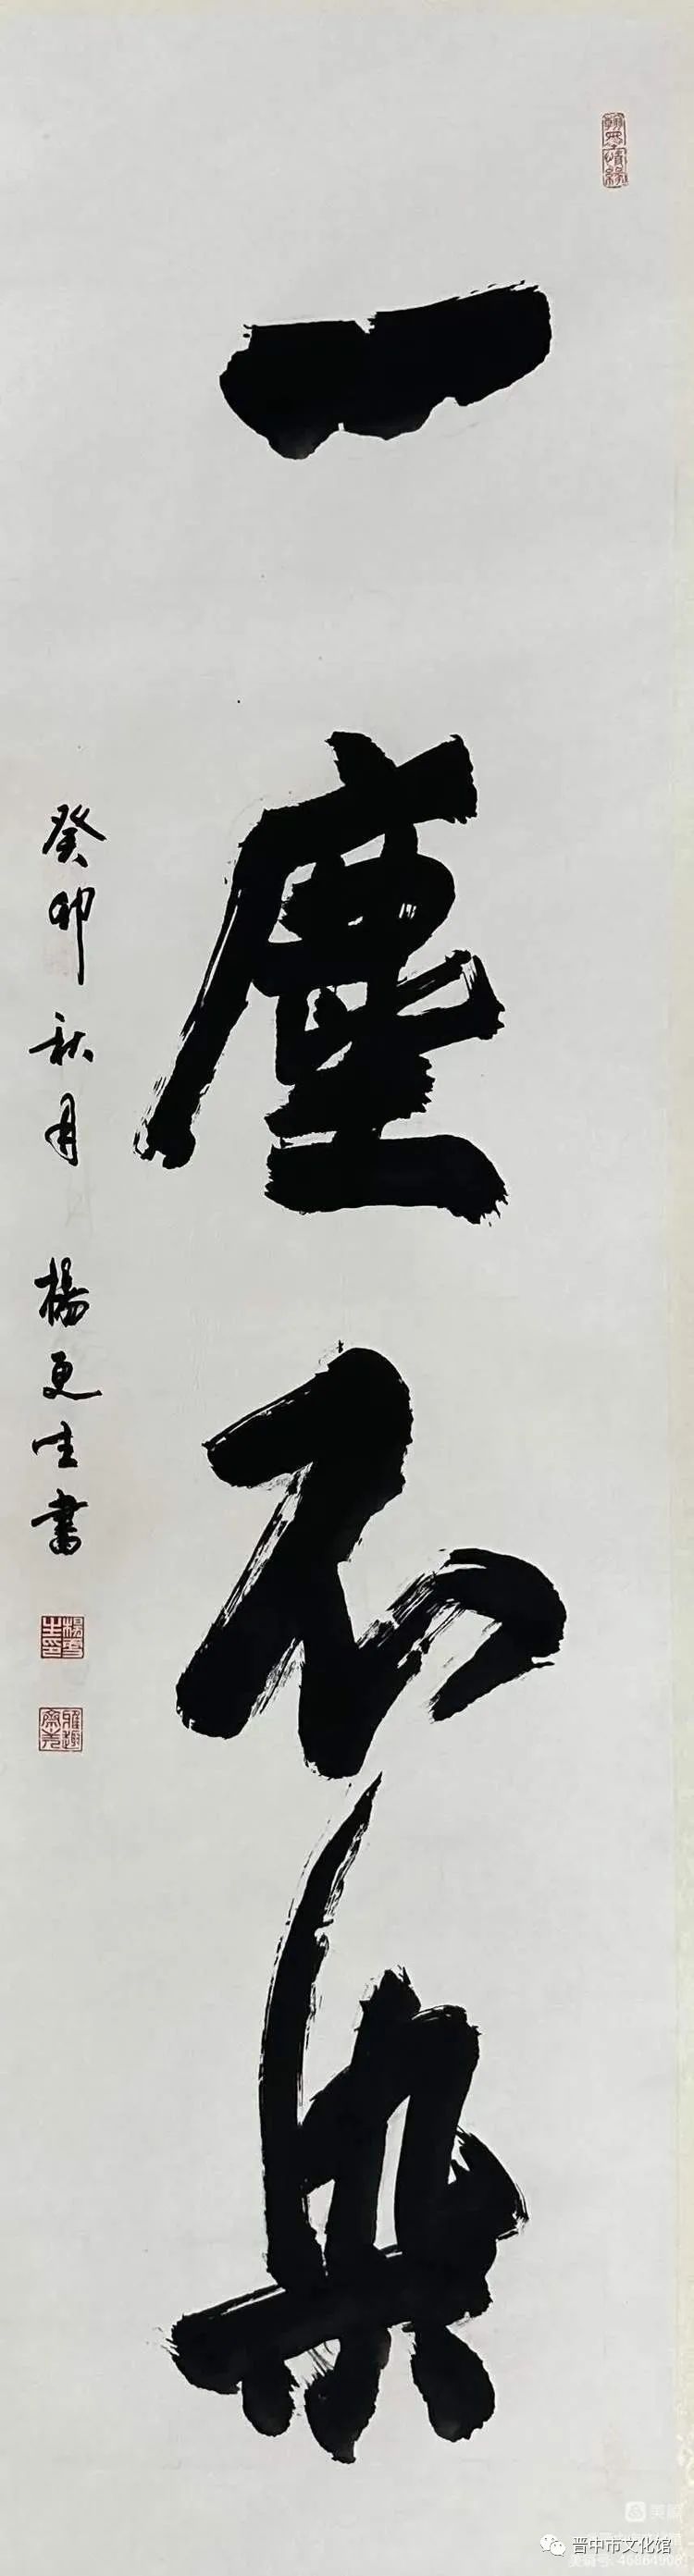 一塵不染
癸卯秋月 楊更生書
晋中市文化馆